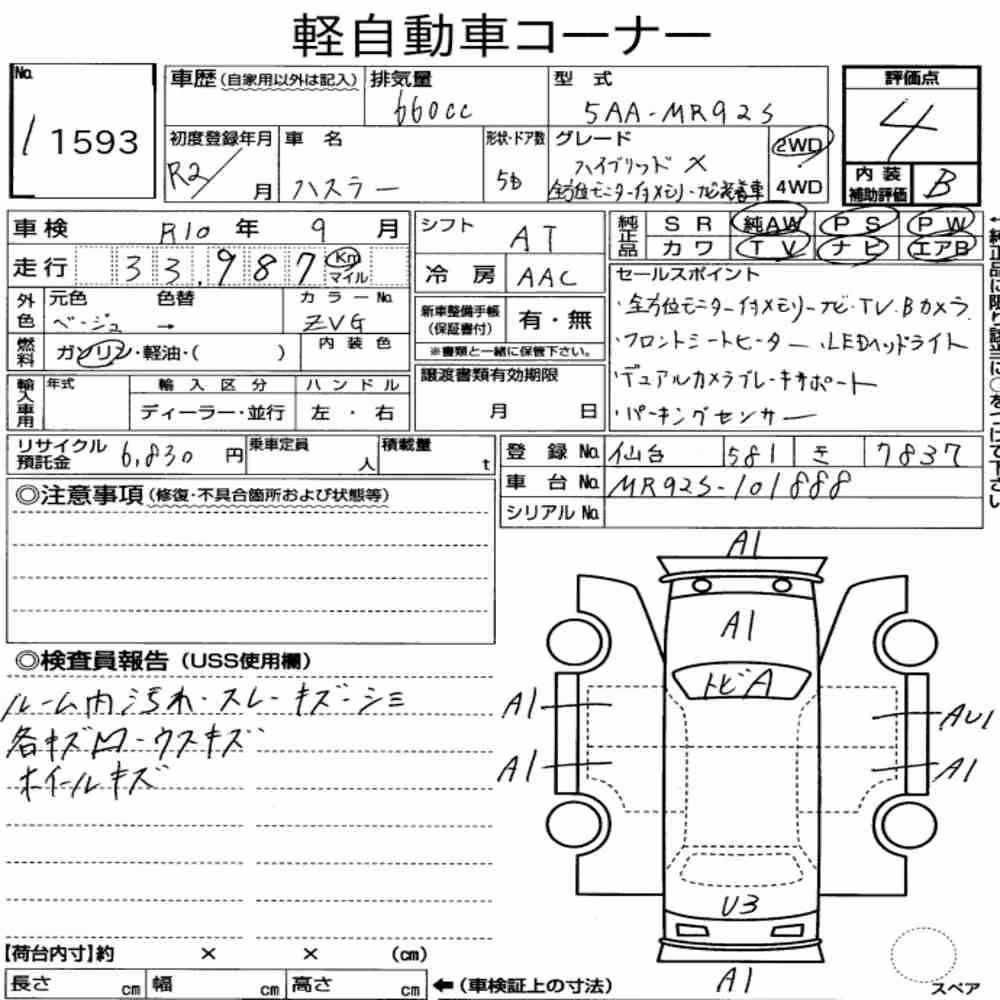 軽自動車コーナー
No. 1 1593
車歴(自家用以外は記入) 排気量 660cc 型式 5AA-MR92S
評価点 4
内装補助評価 B
初度登録年月 R2/ 月 車名 ハスラー 形状・ドア数 5D グレード ハイブリッド X
全方位モニター付メモリーナビ装着車
2WD
4WD
車検 R10 年 9 月
シフト AT
純正品 SR 純AW PS PW
カワ TV ナビ エアB
走行 33,987 Km マイル
冷房 AAC
外色 元色 ベージュ 色替 → カラーNo. ZVG
新車整備手帳(保証書付) 有・無
※書類と一緒に保管下さい。
燃料 ガソリン・軽油・( ) 内装色
セールスポイント
・全方位モニター付メモリーナビ・TV・Bカメラ
・フロントシートヒーター ・LEDヘッドライト
・デュアルカメラブレーキサポート
・パーキングセンサー
譲渡書類有効期限
月 日
輸入車用 年式 輸入区分 ハンドル
ディーラー・並行 左・右
リサイクル預託金 6,830 円 乗車定員 人 積載量 t
登録No. 仙台 581 き 7837
車台No. MR92S-101888
シリアルNo.
←純正品に限り該当に○をつけて下さい
◎注意事項(修復・不具合箇所および状態等)
◎検査員報告(USS使用欄)
ルーム内汚れ・スレ・キズ・シミ
各キズ凹・ウスキズ
ホイールキズ
A1
A1
トビA
A1 AU1
A1 A1
U3
A1
スペア
【荷台内寸】約 × × (cm)
長さ cm 幅 cm 高さ cm ←(車検証上の寸法)